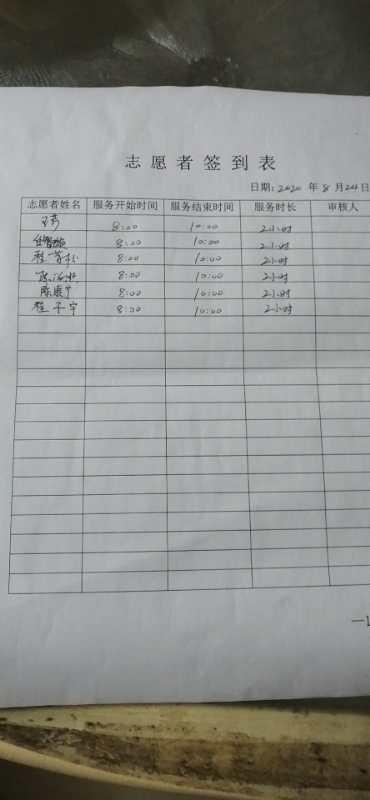 志愿者签到表
日期: 2020 年 8 月 24 日
志愿者姓名 服务开始时间 服务结束时间 服务时长 审核人
8:00 10:00 2小时
8:00 10:00 2小时
8:00 10:00 2小时
8:00 10:00 2小时
陈 8:00 10:00 2小时
程子宇 8:00 10:00 2小时